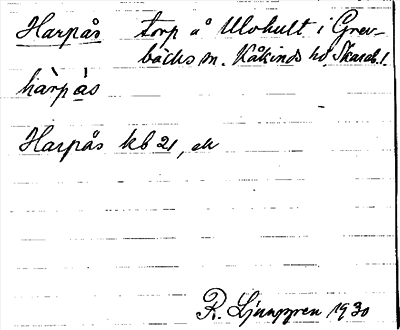 Harpås torp å Ulohult i Grev-
bäcks sn. Kåkinds hd, Skarab. l.
hàrpás
Harpås kb 21, ek
R. Ljunggren 1930